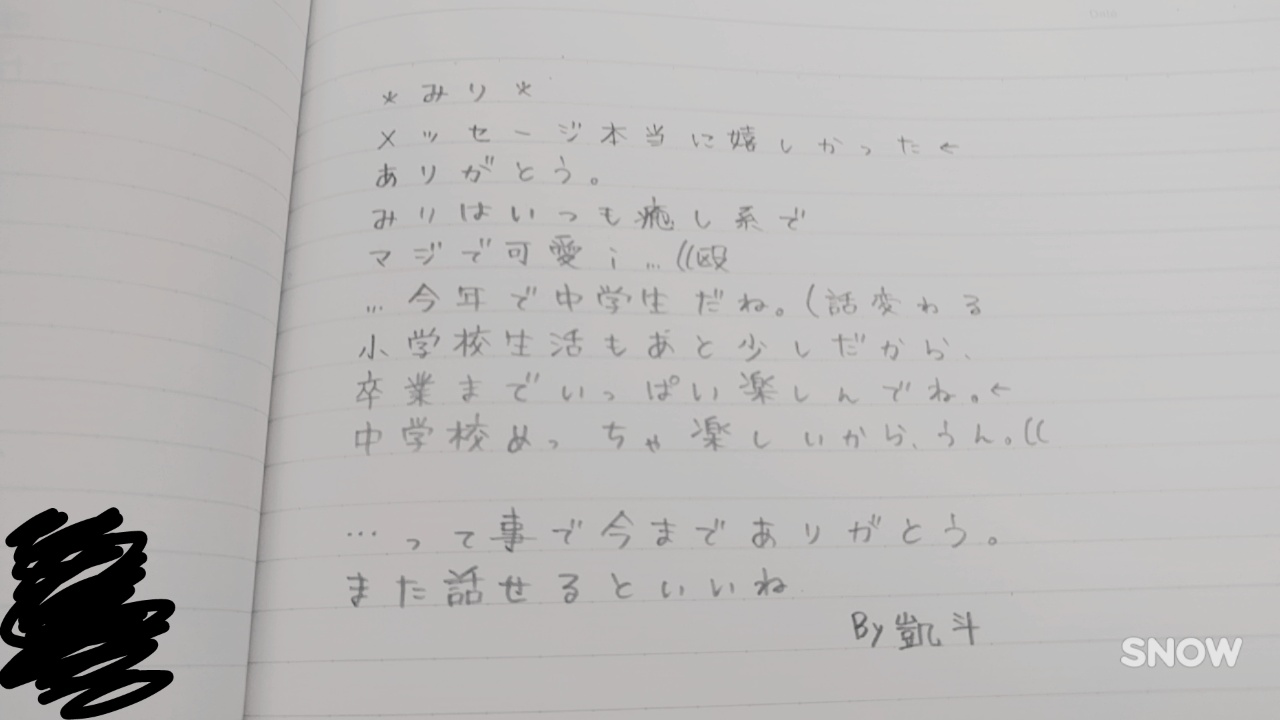 Date
*みり*
メッセージ本当に嬉しかった←
ありがとう。
みりはいつも癒し系で
マジで可愛i…((殴
…今年で中学生だね。(話変わる
小学校生活もあと少しだから、
卒業までいっぱい楽しんでね。←
中学校めっちゃ楽しいから、うん。((
…って事で今までありがとう。
また話せるといいね
By 凱斗
SNOW